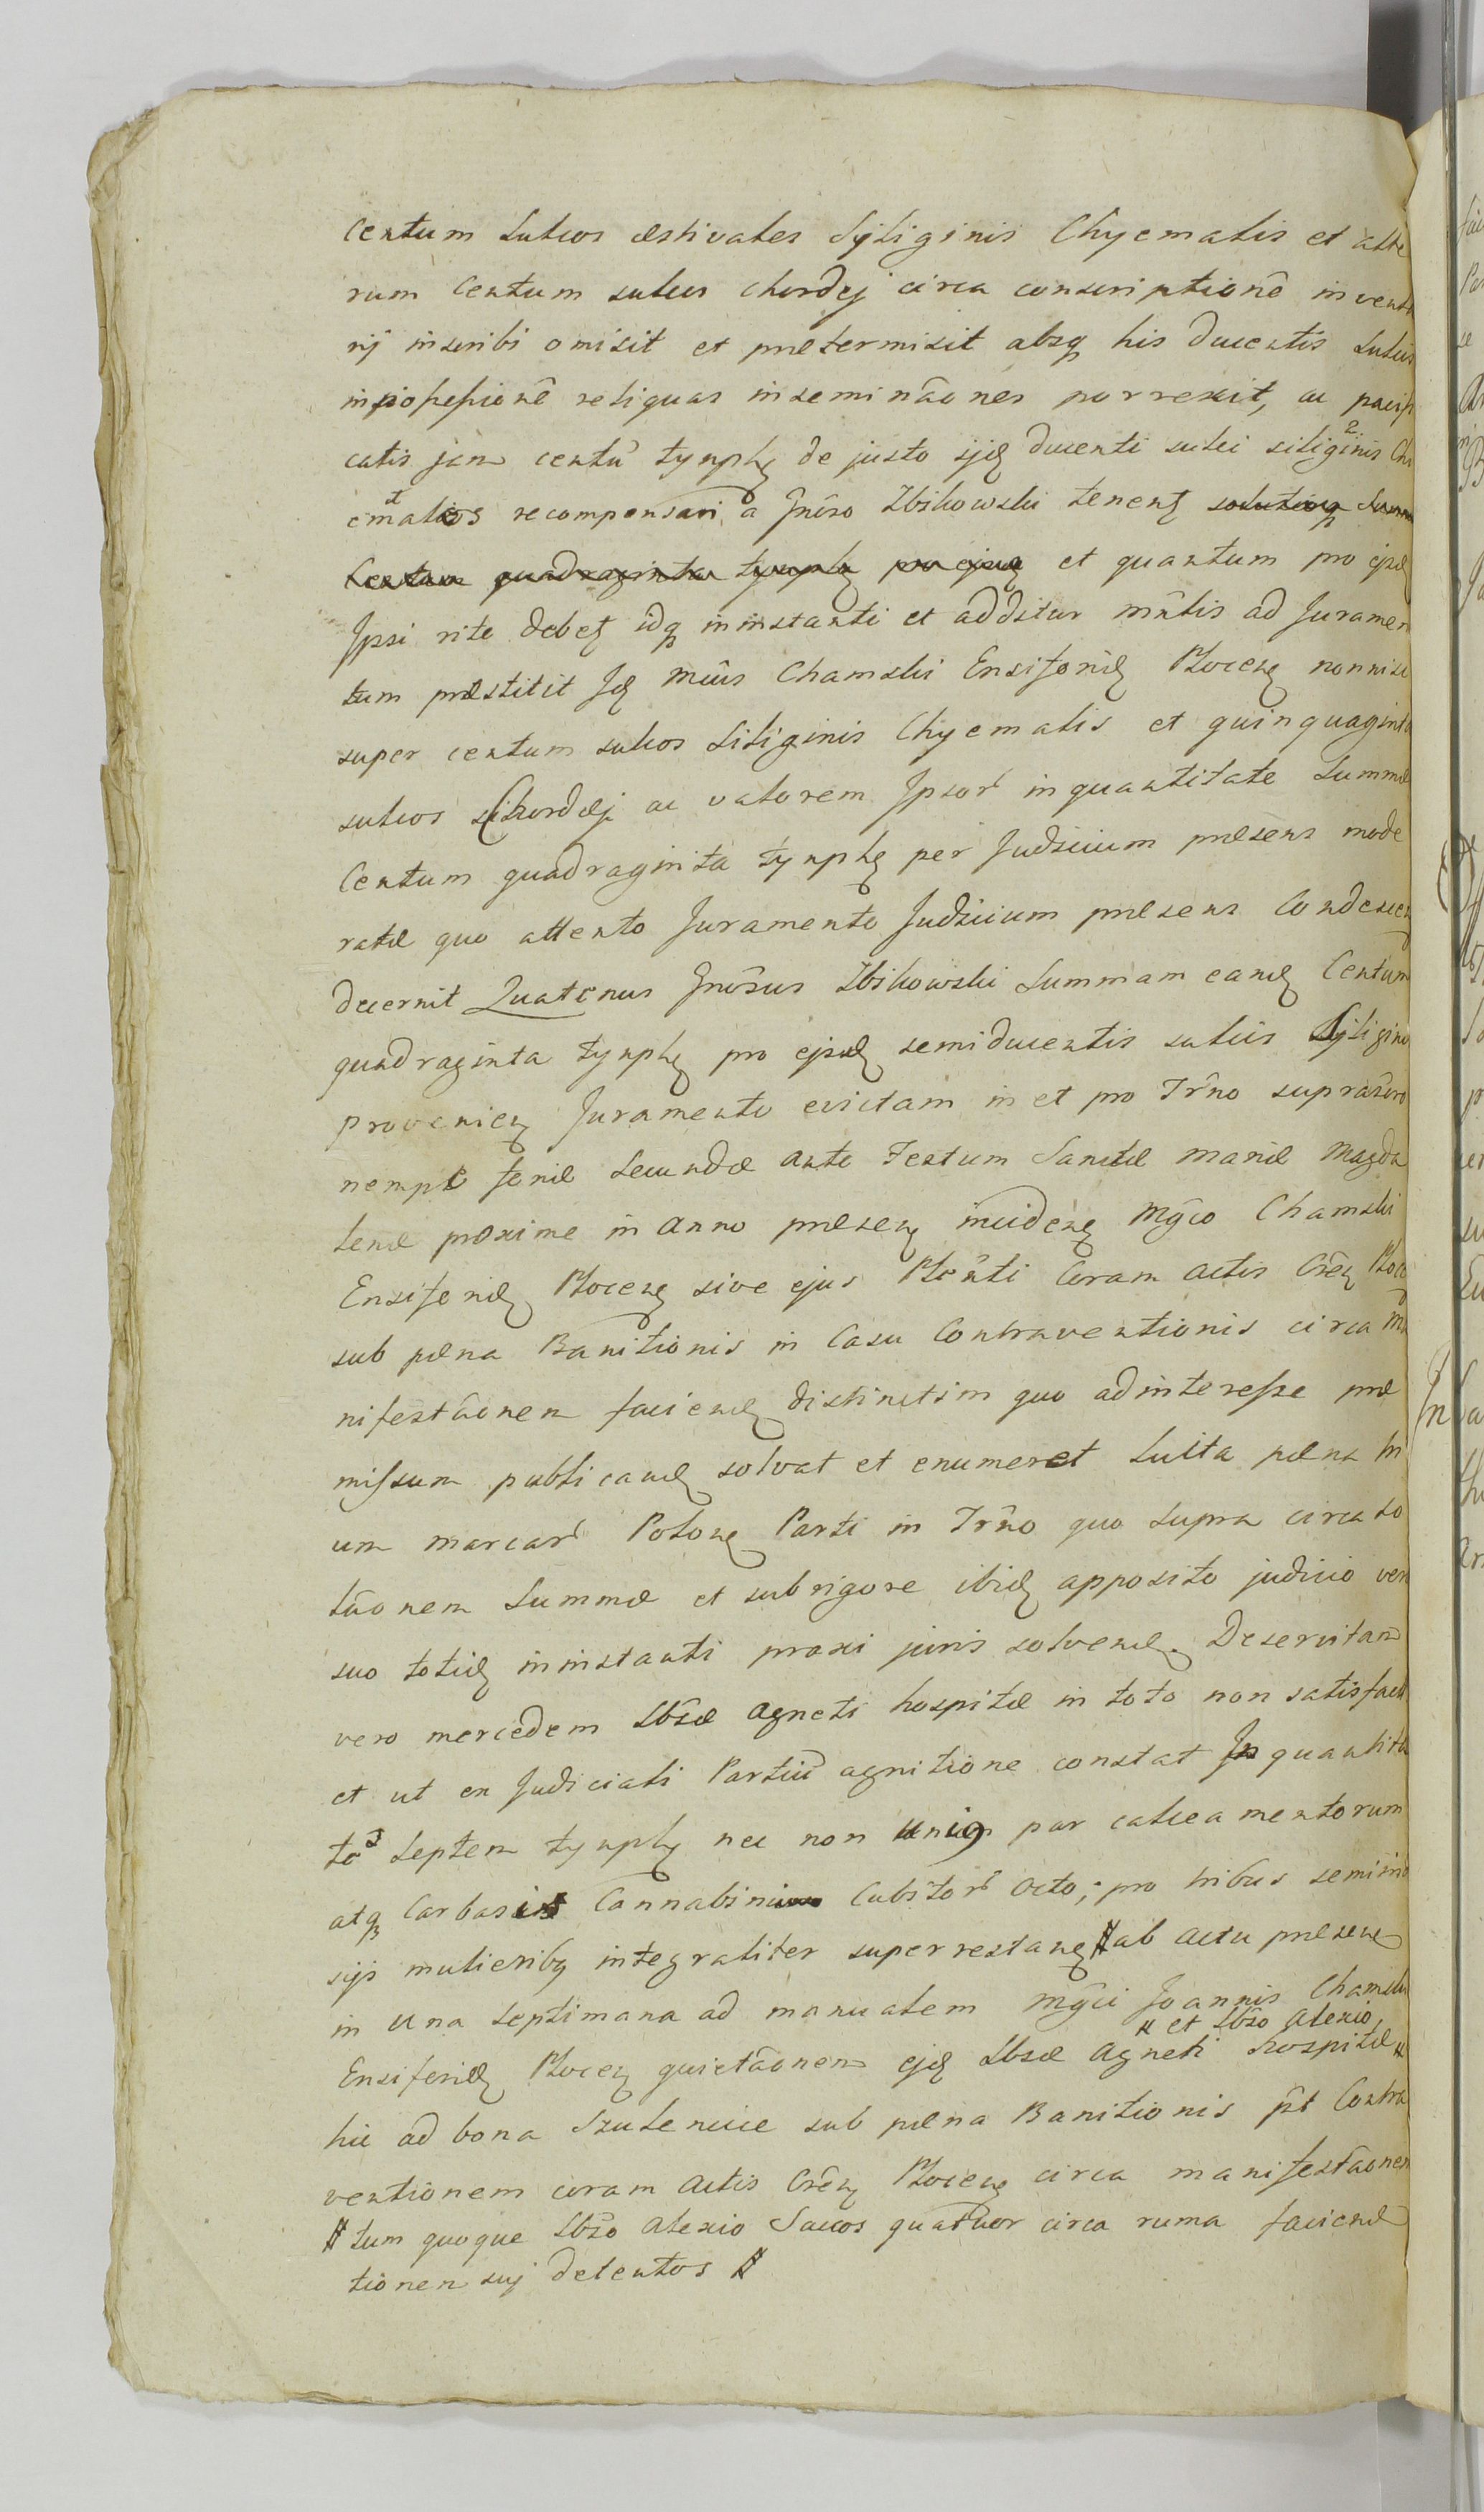 Centum sulcos æstivales Syliginis Chyemalis et alte
rum Centum sulcos chordej circa conscriptionē invent
rij inscribi omisit et prætermisit absq his ducentis sulcis
in possessionē reliquas inseminaōnes porrexit, ac pacifi
catis jam centū tynph de justo ijd ducenti sulci siliginis Chi
ematos recompensari a Gnōso Zbikowski tenent solutioq Summa
Centum quadraginta tynph pro ejsd et quantum pro ejsd
Ipsi rite debet idq in instanti et additur mntis ad Juramen
tum præstitit Id Mcūs Chamski Ensiferid Plocens nonnisi
super centum sulcos Siliginis Chyemalis et quinquaginta
sulcos Chordej ac valorem Ipsor in quantitate Summæ
Centum quadraginta tynph per Judicium præsens mode
ratæ quo attento Juramento Judicium præsens Condescen
decernit Quatenus Gnōsus Zbikowski Summam eand Centum
quadraginta tynph pro ejsd semiducentis sulcis Syligini
provenien Juramento evictam in et pro Trno suprascro
nempe feriæ Secundæ ante Festum Sanctæ Mariæ Magda
lenæ proxime in Anno præsen incidens Mgco Chamski
Ensiferid Plocens sive ejus Plenti Coram Actis Cren Ploc
sub pæna Banitionis in Casu Contraventionis circa Ma
nifestaōnem faciend distinctim quo ad interesse præ
missum publicand solvat et enumeret Luita pæna tri
um marcar Polon Parti in Trno quo supra circa so
luōnem Summæ et sub rigore ibid apposito judicio vero
suo totid in instanti praxi juris solvend. Deservitam
vero mercedem Lbsæ Agneti hospitæ in toto non satisfact
et ut ex Judiciali Partiū agnitione constat In quantita
te Septem tynph nec non par calceamentorum
atq Carbasis Cannabini Cubitor Octo; pro tribus semiino
sijs mulieribq integraliter superrestang # ab Actu præsen
in Una Septimana ad manualem Mgci Joannis Chamski
# et Lbso Alexio
Ensiferid Plocen quietaōnem ejd Lbsæ Agneti hospitæ #
hic ad bona Szulenice sub pæna Banitionis pt Contra
ventionem coram Actis Cren Plocen circa manifestaōnem
# tum quoque Lbso Alexio Saccos quatuor circa ruma faciend
tionem suj detentos #